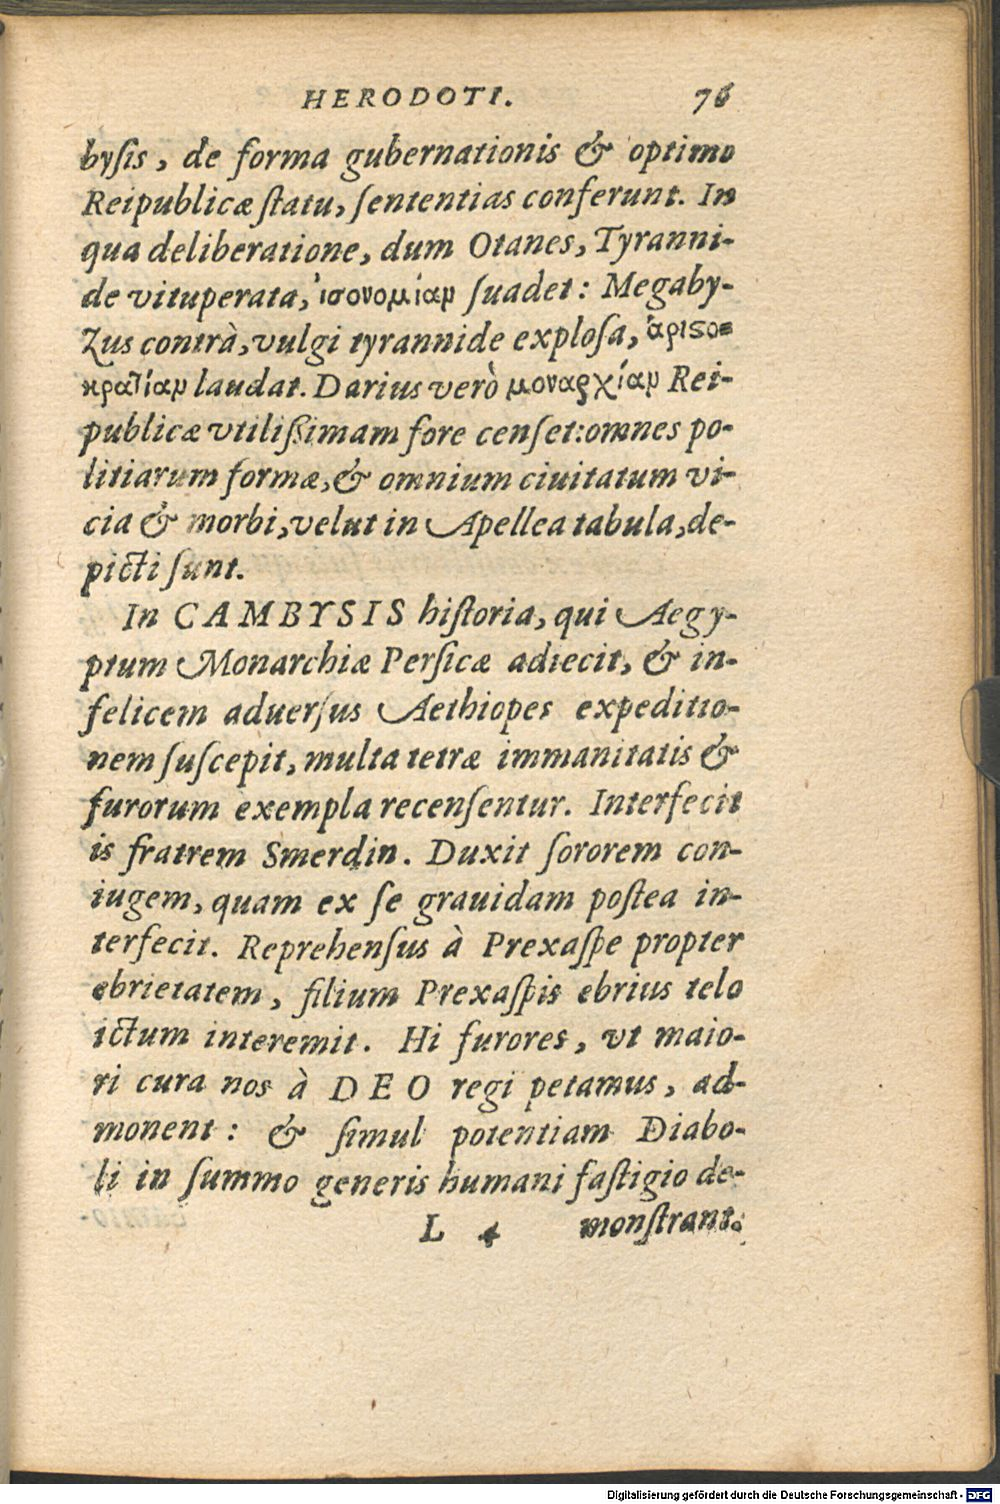 HERODOTI. 76
byſis, de forma gubernationis & optimo
Reipublicæ ſtatu, ſententias conferunt. In
qua deliberatione, dum Otanes, Tyranni-
de vituperata, ἰσονομίαν ſuadet: Megaby-
Zus contrà, vulgi tyrannide exploſa, ἀριϛο-
κρατίαν laudat. Darius verò μοναρχίαν Rei-
publicæ vtiliſſimam fore cenſet: omnes po-
litiarum formæ, & omnium ciuitatum vi-
cia & morbi, velut in Apellea tabula, de-
picti ſunt.
In CAMBYSIS hiſtoria, qui Aegy-
ptum Monarchiæ Perſicæ adiecit, & in-
felicem aduerſus Aethiopes expeditio-
nem ſuſcepit, multa tetræ immanitatis &
furorum exempla recenſentur. Interfecit
is fratrem Smerdin. Duxit ſororem con-
iugem, quam ex ſe grauidam poſtea in-
terfecit. Reprehenſus à Prexaſpe propter
ebrietatem, filium Prexaſpis ebrius telo
ictum interemit. Hi furores, vt maio-
ri cura nos à DEO regi petamus, ad-
monent: & ſimul potentiam Diabo-
li in ſummo generis humani faſtigio de-
L 4 monſtrant.
Digitalisierung gefördert durch die Deutsche Forschungsgemeinschaft - DFG